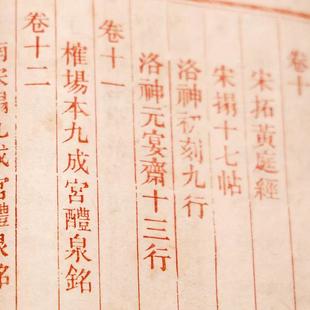 卷十
宋拓黃庭經
宋搨十七帖
洛神初刻九行
洛神元宴齋十三行
卷十一
榷場本九成宮醴泉銘
卷十二
南宋搨九成宮醴泉銘